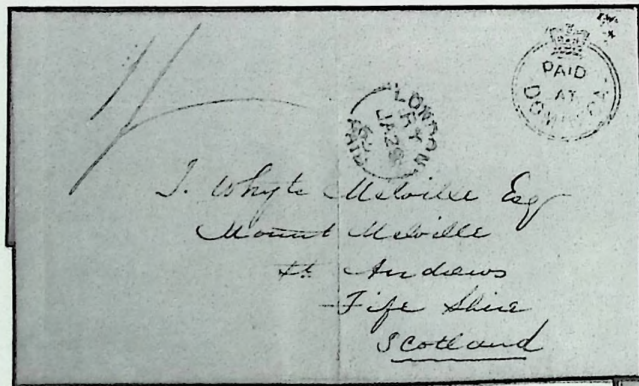 1/
PAID
AT
DOMINICA
LONDON
RY
JA 28
PAID
J. Whyte Melville Esq
Mount Melville
St. Andrews
Fife Shire
Scotland